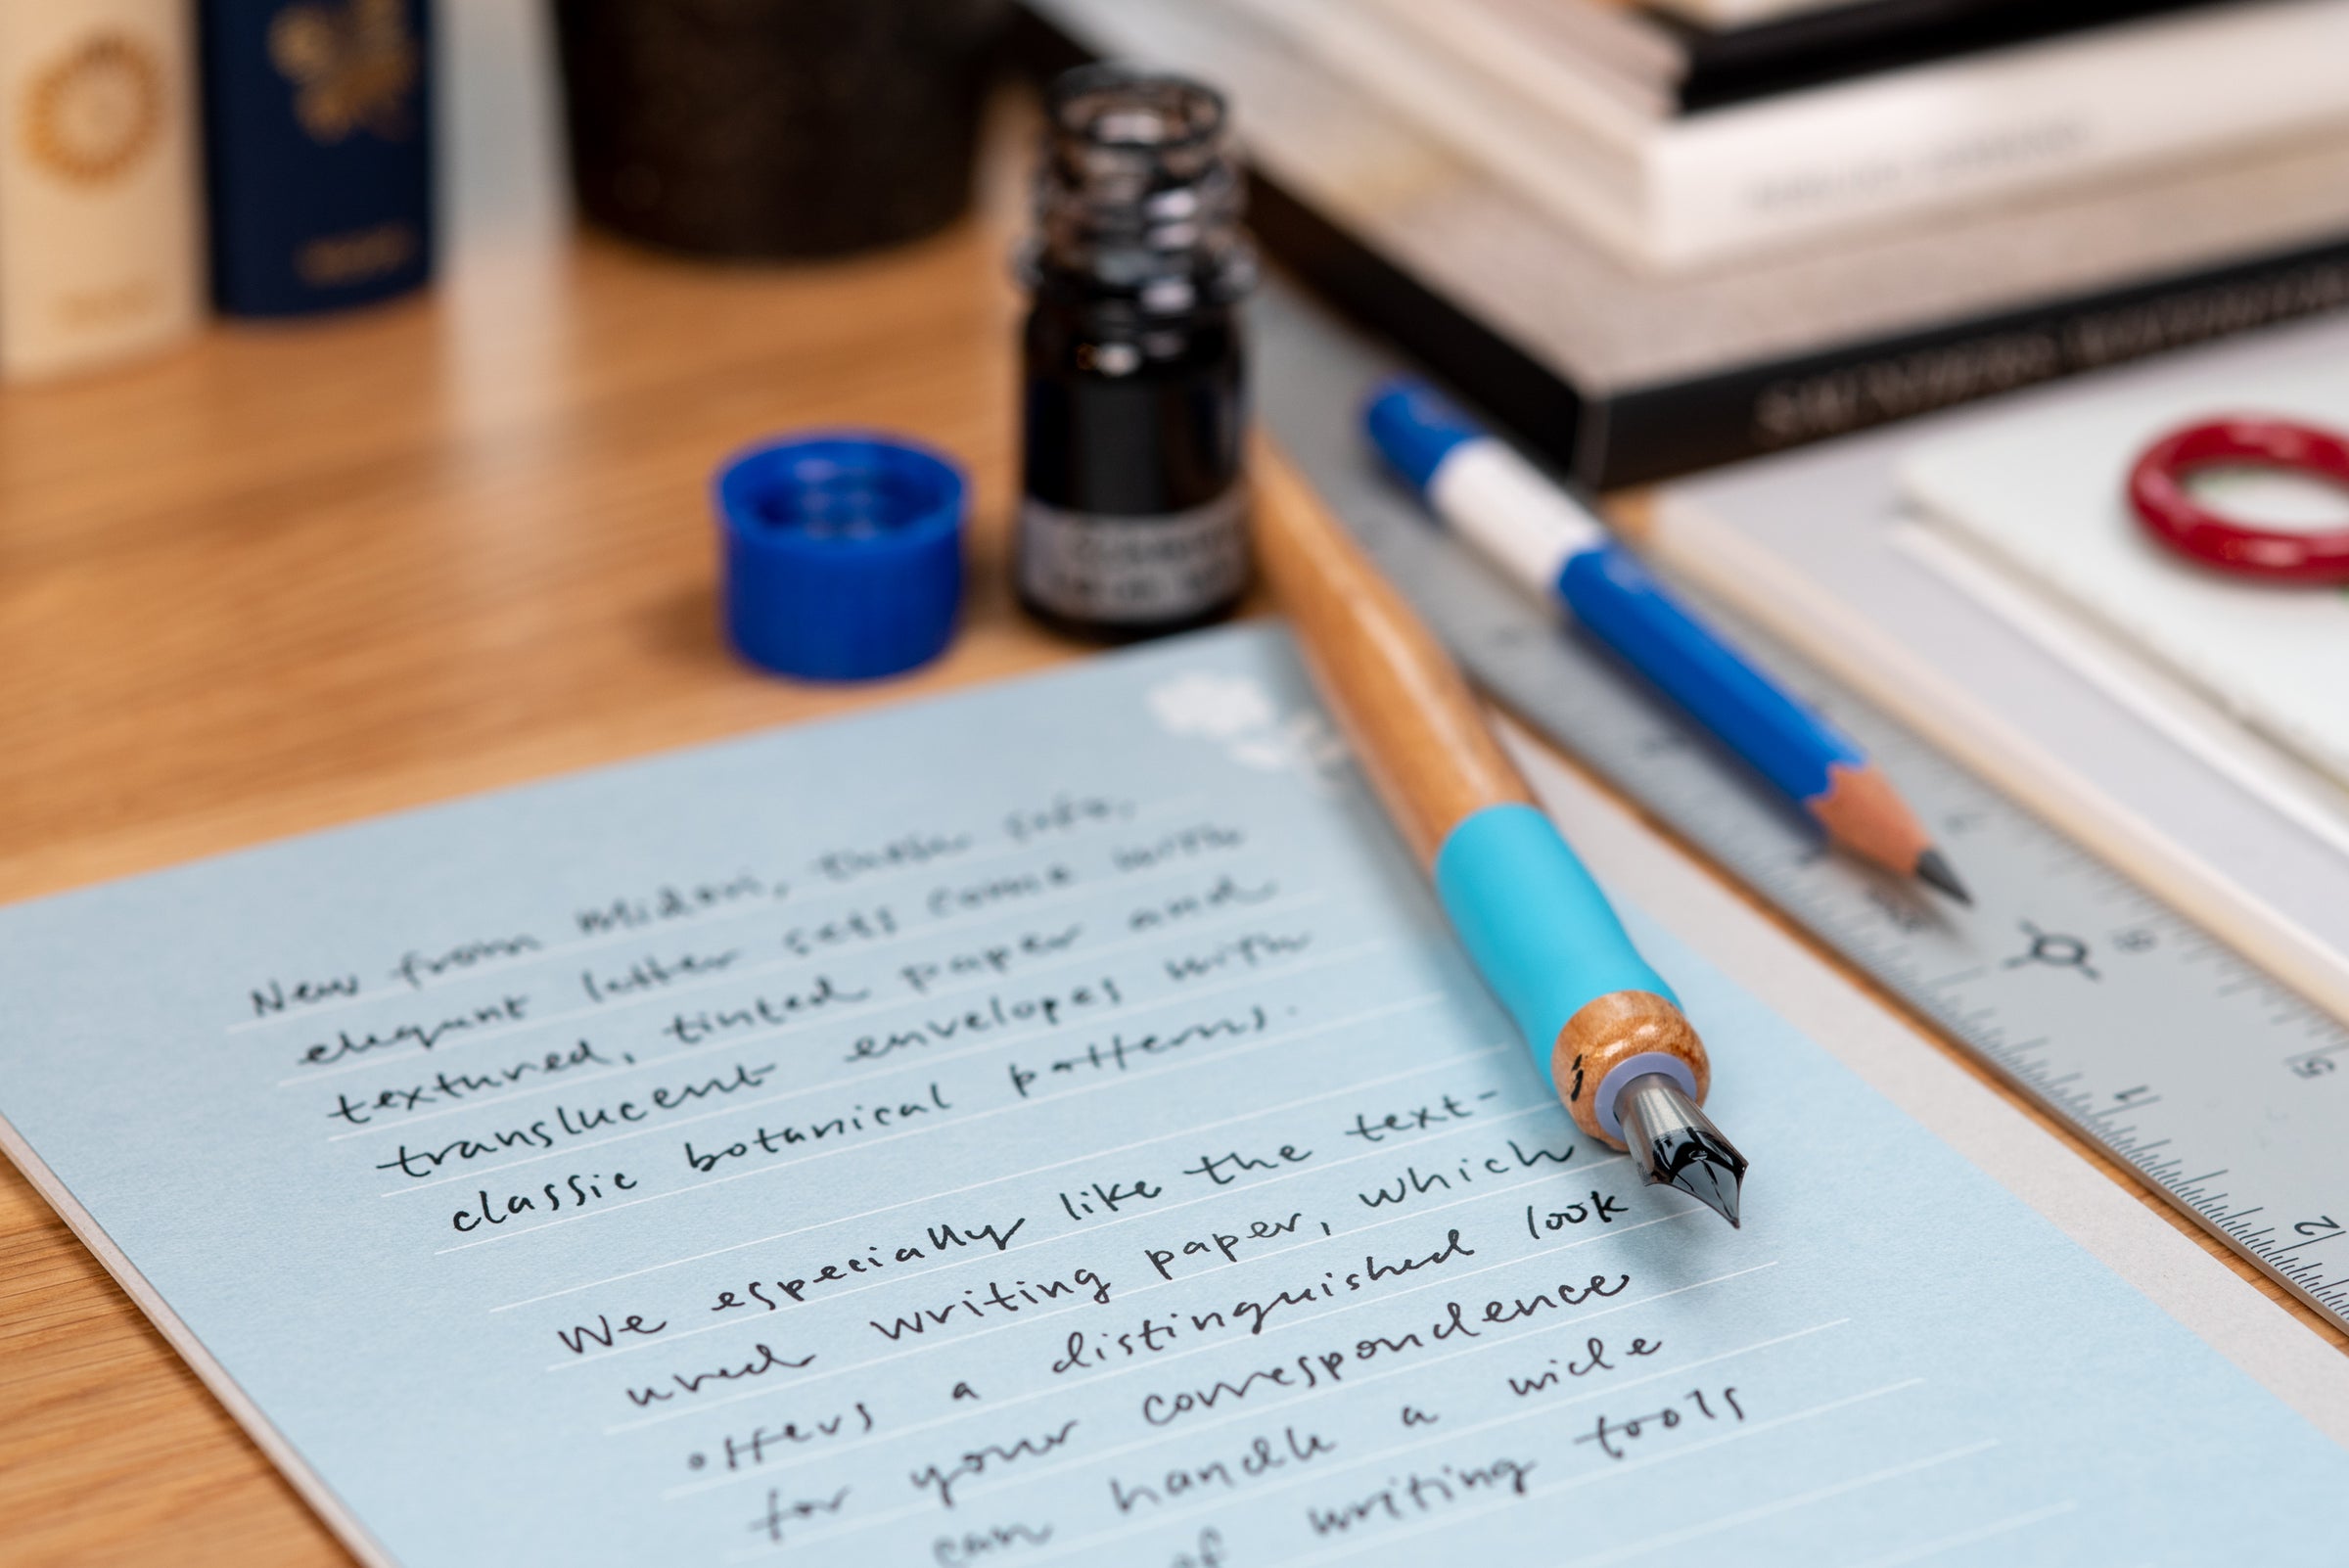 New from Midori, these
elegant letter sets come with
textured, tinted paper and
translucent envelopes with
classic botanical patterns.
We especially like the text-
ured writing paper, which
offers a distinguished look
for your correspondence
can handle a wide
of writing tools
6
5
4
2